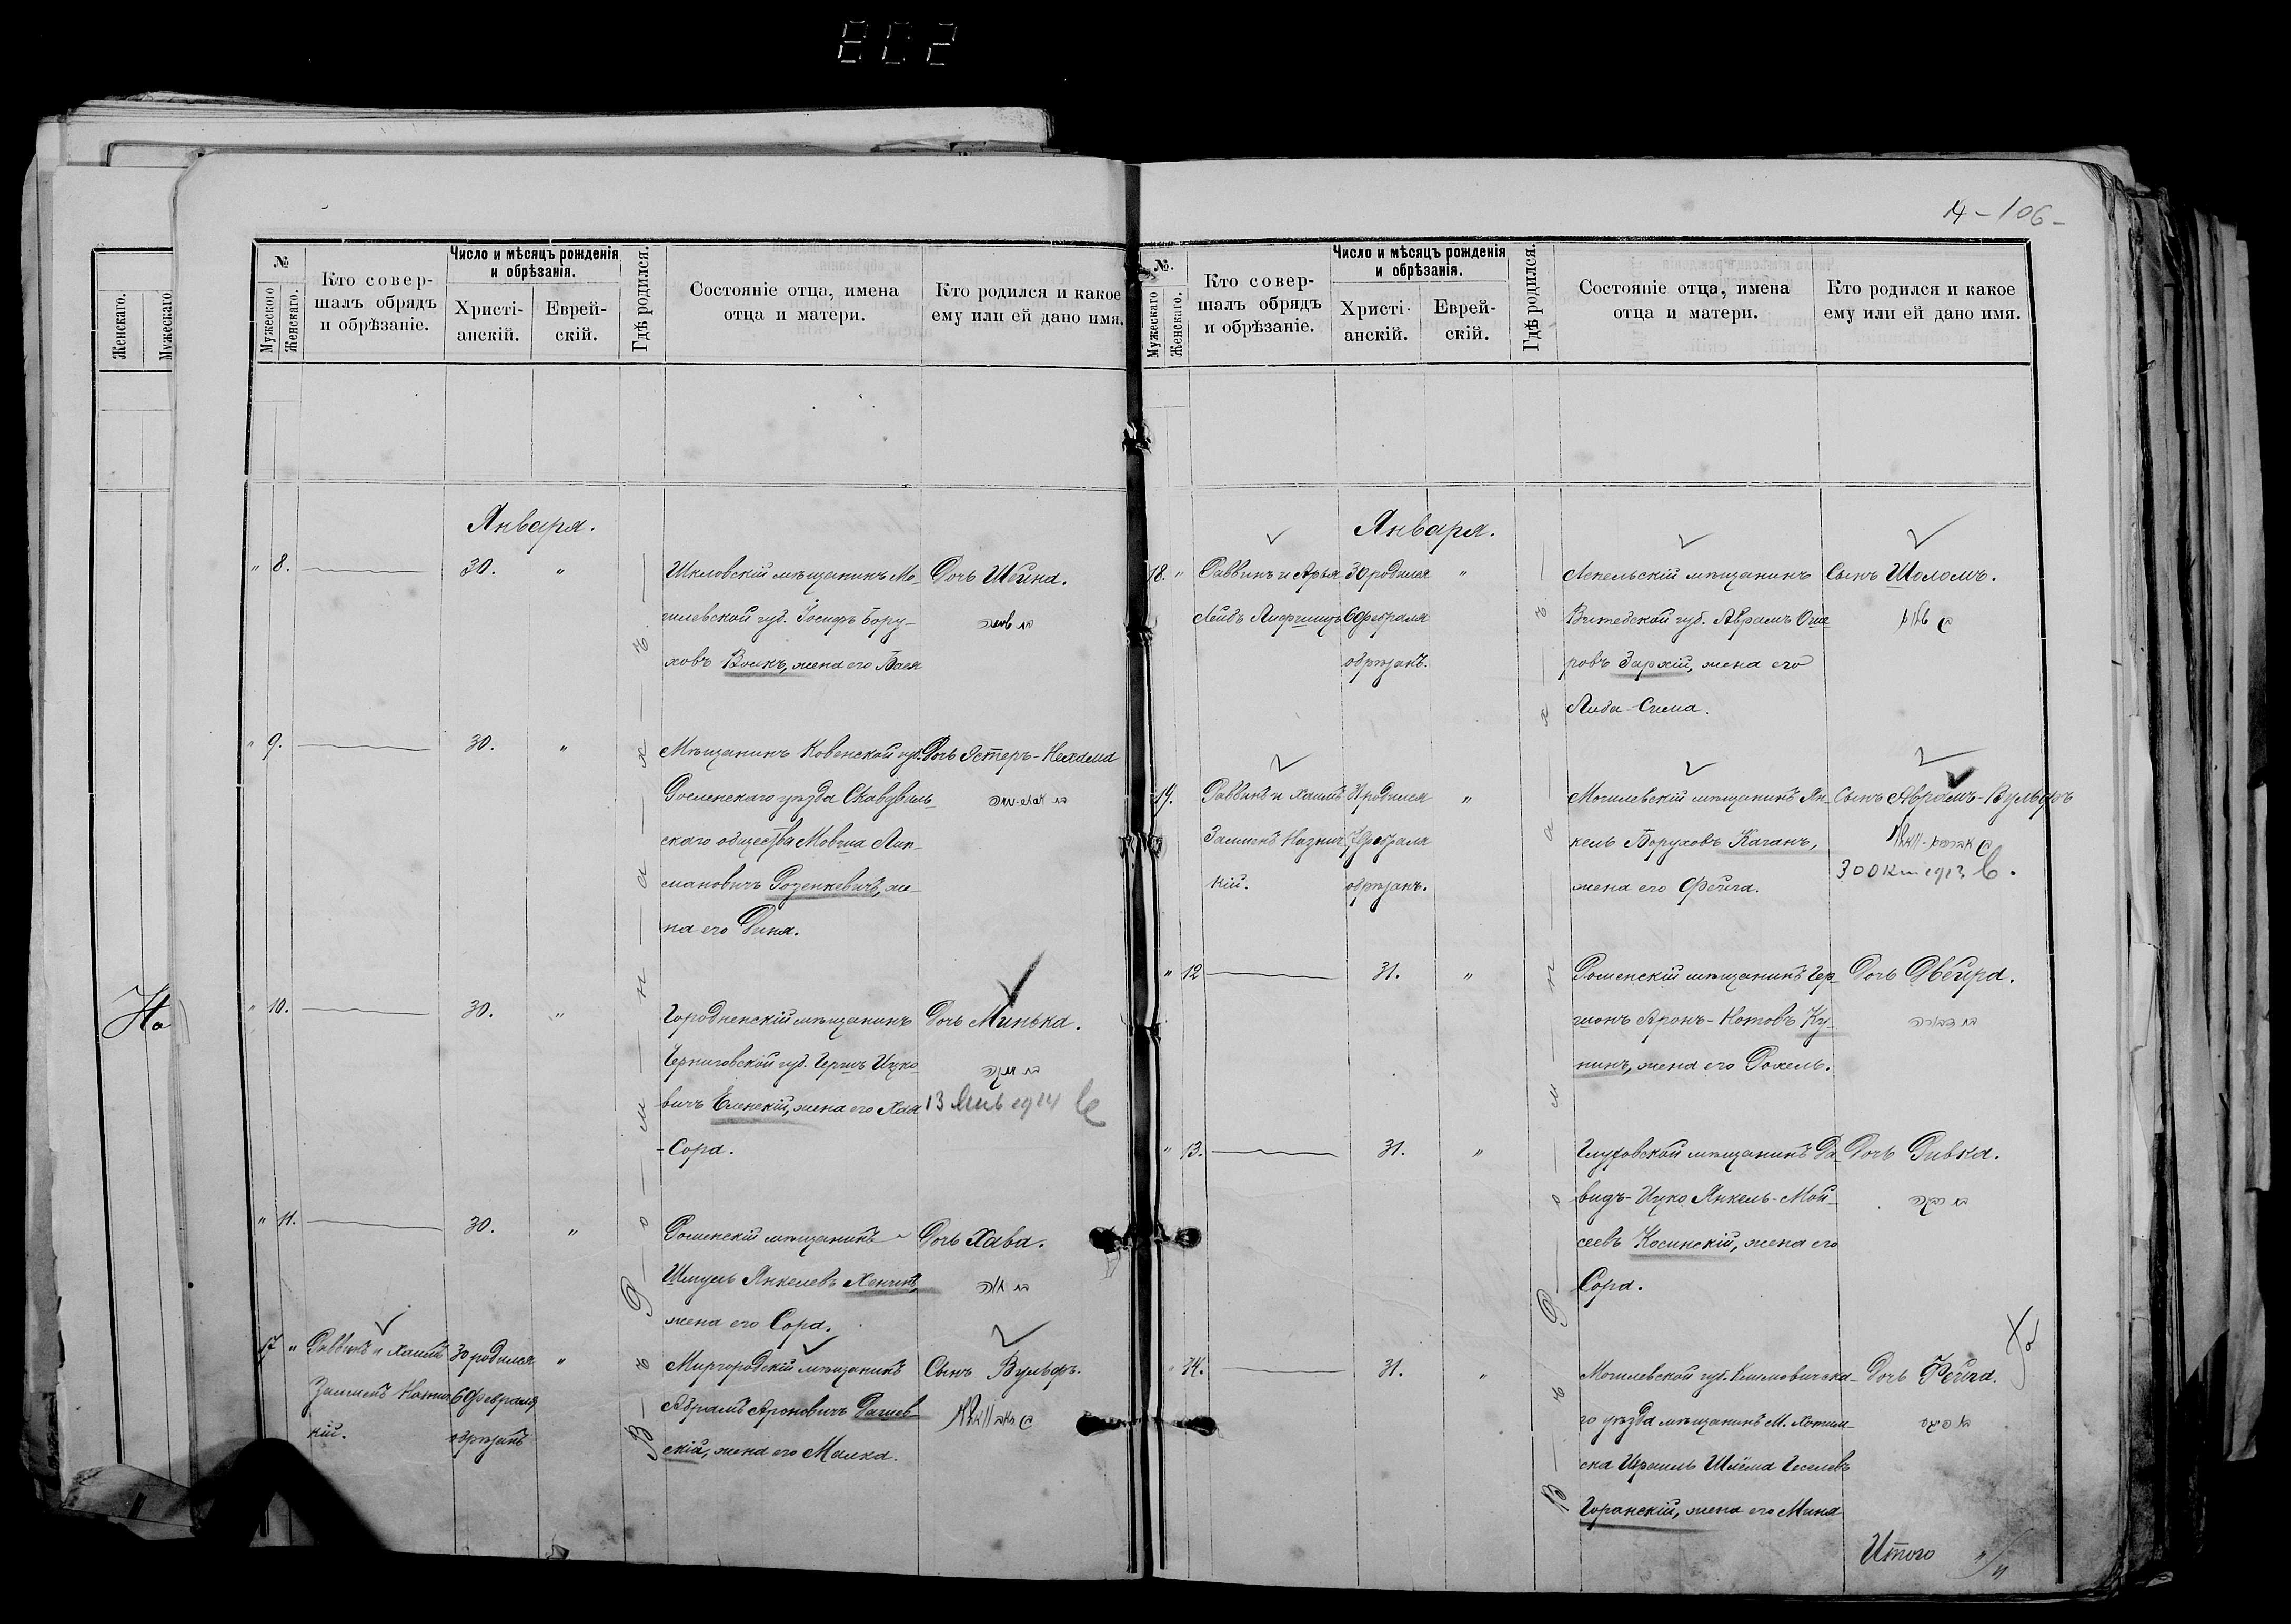 802
14 - 106 -
№
Мужескаго
Женскаго.
Кто совер-
шалъ обрядъ
и обрѣзаніе.
Число и мѣсяцъ рожденія
и обрѣзанія.
Христі-
анскій.
Еврей-
скій.
Гдѣ родился.
Состояніе отца, имена
отца и матери.
Кто родился и какое
ему или ей дано имя.
Января.
" 8.
30.
"
Шкловскій мѣщанинъ Мо-
гилевской губ. Іосифъ Бору-
ховъ Волкъ, жена его Бася
Дочь Шейна.
" 9.
30.
"
Мѣщанинъ Ковенской губ.
Россіенскаго уѣзда Скавдвиль-
скаго общества Мовша Лип-
мановичъ Розенкевичъ, же-
на его Дина.
Дочь Эстеръ-Нехама
" 10.
30.
"
Городненскій мѣщанинъ
Черниговской губ. Гершъ Ицко-
вичъ Еленскій, жена его Хая
-Сора.
Дочь Минька.
13 1914
" 11.
30.
"
Роменскій мѣщанинъ
Шмуль Янкелевъ Хенкинъ,
жена его Сора.
Дочь Хава.
17 "
Раввинъ и Хаимъ
Залменъ
кій.
30 родился
6 Февраля
обрѣзанъ
"
Миргородскій мѣщанинъ
Абрамъ Ароновичъ Рашев-
скій, жена его Малка.
Сынъ Вульфъ.
В ъ Р о м н а х ъ
№.
Мужескаго
Женскаго.
Кто совер-
шалъ обрядъ
и обрѣзаніе.
Число и мѣсяцъ рожденія
и обрѣзанія.
Христі-
анскій.
Еврей-
скій.
Гдѣ родился.
Состояніе отца, имена
отца и матери.
Кто родился и какое
ему или ей дано имя.
Января.
18. "
Раввинъ и Арья
Лейбъ Лифшицъ
30 родился
6 Февраля
обрѣзанъ.
"
Лепельскій мѣщанинъ
Витебской губ. Абрамъ Оше-
ровъ Зархій, жена его
Либа-Сима.
Сынъ Шоломъ.
19.
Раввинъ и Хаимъ
Залменъ
кій.
31 родился
7 Февраля
обрѣзанъ.
"
Могилевскій мѣщанинъ Ян-
кель Боруховъ Каганъ,
жена его Фейга.
Сынъ Абрамъ-Вульфъ
30 Окт 1913
" 12
31.
"
Роменскій мѣщанинъ Гер-
шонъ Аронъ-Нотовъ Ку-
нинъ, жена его Рохель.
Дочь Двейра.
" 13.
31.
"
Глуховской мѣщанинъ Да-
видъ-Ицко Янкель-Мой-
сеевъ Косинскій, жена его
Сора.
Дочь Ривка.
" 14.
31.
"
Могилевской губ. Климовичска-
го уѣзда мѣщанинъ М. Хотим-
ска Израиль Шлёма Геселевъ
Горанскій, жена его Мина
Дочь Фейга.
В ъ Р о м н а х ъ
Итого
На
Женскаго.
Мужескаго